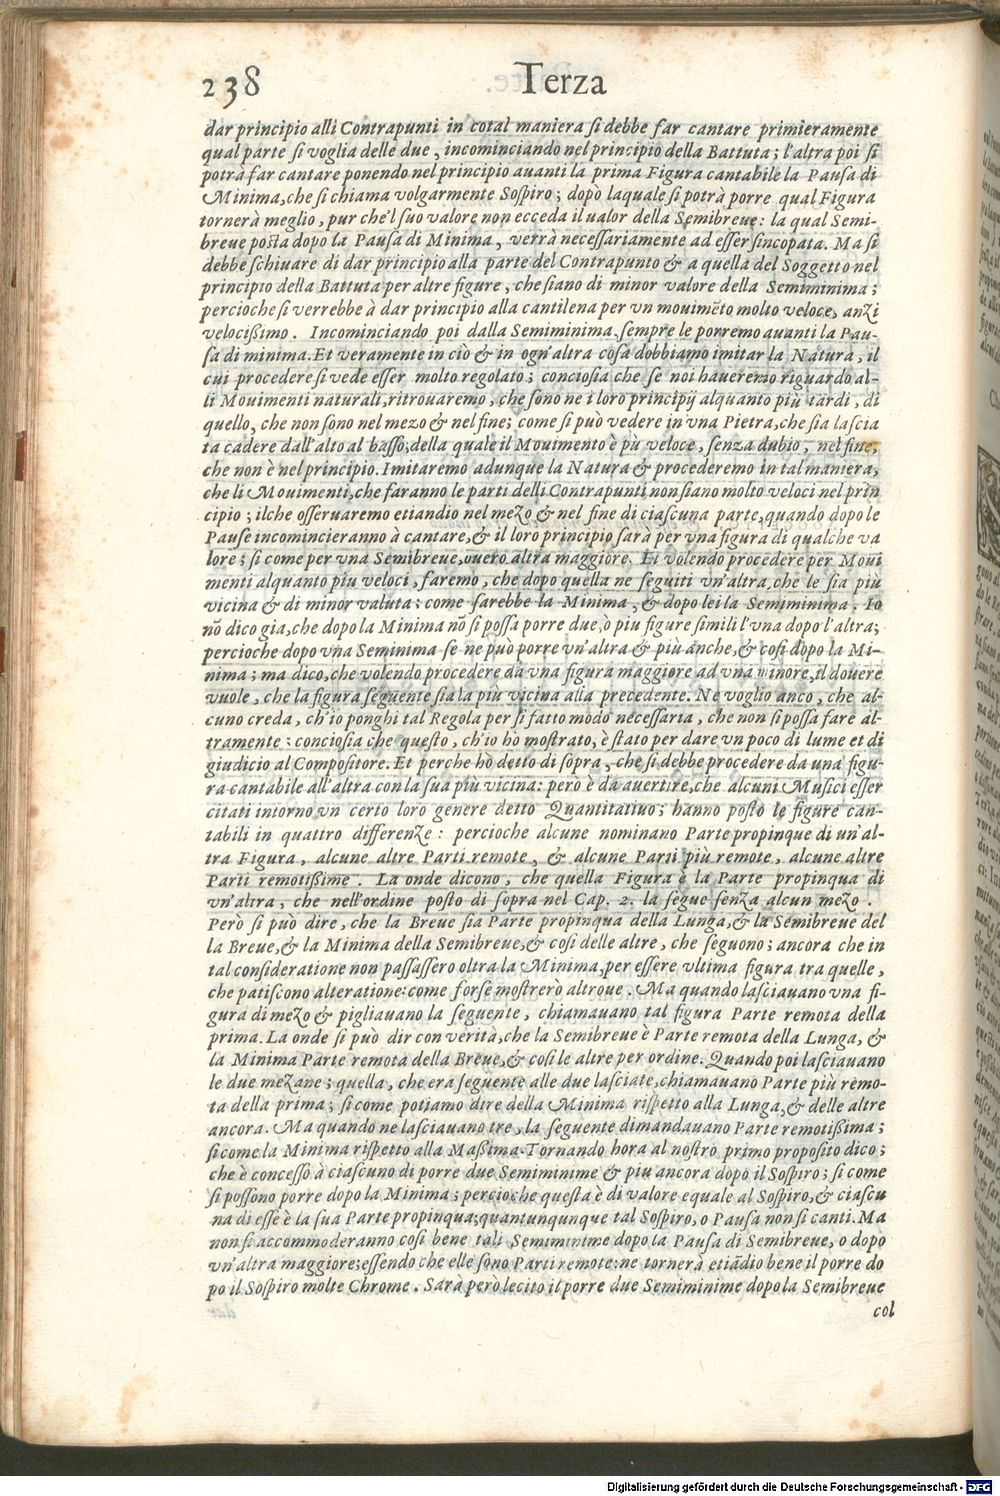 238 Terza
dar principio alli Contrapunti in cotal maniera si debbe far cantare primieramente
qual parte si voglia delle due, incominciando nel principio della Battuta; l'altra poi si
potrà far cantare ponendo nel principio auanti la prima Figura cantabile la Pausa di
Minima, che si chiama volgarmente Sospiro; dopò laquale si potrà porre qual Figura
tornerà meglio, pur che'l suo valore non ecceda il ualor della Semibreue: la qual Semi-
breue posta dopo la Pausa di Minima, verrà necessariamente ad esser sincopata. Ma si
debbe schiuare di dar principio alla parte del Contrapunto & a quella del Soggetto nel
principio della Battuta per altre figure, che siano di minor valore della Semiminima;
percioche si verrebbe à dar principio alla cantilena per vn mouimẽto molto veloce, anzi
velocißimo. Incominciando poi dalla Semiminima, sempre le porremo auanti la Pau-
sa di minima. Et veramente in ciò & in ogn'altra cosa dobbiamo imitar la Natura, il
cui procedere si vede esser molto regolato; conciosia che se noi haueremo riguardo al-
li Mouimenti naturali, ritrouaremo, che sono ne i loro principij alquanto più tardi, di
quello, che non sono nel mezo & nel fine; come si può vedere in vna Pietra, che sia lascia
ta cadere dall'alto al basso; della quale il Mouimento è più veloce, senza dubio, nel fine,
che non è nel principio. Imitaremo adunque la Natura & procederemo in tal maniera,
che li Mouimenti, che faranno le parti delli Contrapunti non siano molto veloci nel prin
cipio; ilche osseruaremo etiandio nel mezo & nel fine di ciascuna parte, quando dopo le
Pause incomincieranno à cantare, & il loro principio sarà per vna figura di qualche va
lore; si come per vna Semibreue, ouero altra maggiore. Et volendo procedere per Moui
menti alquanto piu veloci, faremo, che dopo quella ne seguiti vn'altra, che le sia più
vicina & di minor valuta: come sarebbe la Minima, & dopo lei la Semiminima. Io
nõ dico gia, che dopo la Minima nõ si possa porre due, ò piu figure simili l'vna dopo l'altra;
percioche dopo vna Seminima se ne può porre vn'altra & più anche, & così dopo la Mi-
nima; ma dico, che volendo procedere da vna figura maggiore ad vna minore, il douere
vuole, che la figura seguente sia la più vicina alla precedente. Ne voglio anco, che al-
cuno creda, ch'io ponghi tal Regola per sì fatto modo necessaria, che non si possa fare al-
tramente: conciosia che questo, ch'io hò mostrato, è stato per dare vn poco di lume et di
giudicio al Compositore. Et perche hò detto di sopra, che si debbe procedere da una figu-
ra cantabile all'altra con la sua più vicina: però è da auertire, che alcuni Musici esser
citati intorno vn certo loro genere detto Quantitatiuo; hanno posto le figure can-
tabili in quattro differenze: percioche alcune nominano Parte propinque di un'al-
tra Figura, alcune altre Parti remote, & alcune Parti più remote, alcune altre
Parti remotißime. La onde dicono, che quella Figura è la Parte propinqua di
vn'altra, che nell'ordine posto di sopra nel Cap. 2. la segue senza alcun mezo.
Però si può dire, che la Breue sia Parte propinqua della Lunga, & la Semibreue del
la Breue, & la Minima della Semibreue, & così delle altre, che seguono; ancora che in
tal consideratione non passassero oltra la Minima, per essere vltima figura tra quelle,
che patiscono alteratione: come forse mostrerò altroue. Ma quando lasciauano vna fi-
gura di mezo & pigliauano la seguente, chiamauano tal figura Parte remota della
prima. La onde si può dir con verità, che la Semibreue è Parte remota della Lunga, &
la Minima Parte remota della Breue, & così le altre per ordine. Quando poi lasciauano
le due mezane; quella, che era seguente alle due lasciate, chiamauano Parte più remo-
ta della prima; si come potiamo dire della Minima rispetto alla Lunga, & delle altre
ancora. Ma quando ne lasciauano tre, la seguente dimandauano Parte remotißima;
si come la Minima rispetto alla Maßima. Tornando hora al nostro primo proposito dico;
che è concesso à ciascuno di porre due Semiminime & piu ancora dopò il Sospiro; si come
si possono porre dopo la Minima; percioche questa è di valore equale al Sospiro, & ciascu
na di esse è la sua Parte propinqua; quantunqunque tal Sospiro, o Pausa non si canti. Ma
non si accommoderanno così bene tali Semiminime dopo la Pausa di Semibreue, o dopo
vn'altra maggiore; essendo che elle sono Parti remote: ne tornerà etiãdio bene il porre do
po il Sospiro molte Chrome. Sarà però lecito il porre due Semiminime dopo la Semibreue
col
Digitalisierung gefördert durch die Deutsche Forschungsgemeinschaft - DFG